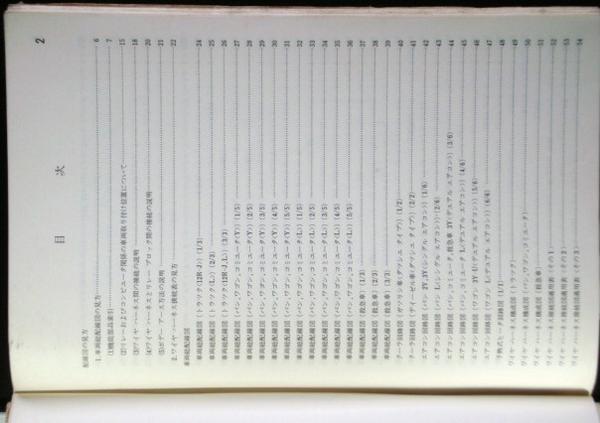 2
目 次
配線図の見方
1.車両総配線図の見方 6
(1)機能部品索引 7
(2)リレーおよびコンピュータ関係の車両取り付け位置について 15
(3)ワイヤ ハーネス間の接続の説明 18
(4)ワイヤ ハーネスとリレー ブロック間の接続の説明 20
(5)ボデー アース方法の説明 21
2.ワイヤ ハーネス接続表の見方 22
車両総配線図
車両総配線図 (トラック) (1/3) 24
車両総配線図 (トラック) (2/3) 25
車両総配線図 (3/3) 26
車両総配線図 (バン,ワゴン,コミュータ(Y)) (1/5) 27
車両総配線図 (バン,ワゴン,コミュータ(Y)) (2/5) 28
車両総配線図 (バン,ワゴン,コミュータ(Y)) (3/5) 29
車両総配線図 (バン,ワゴン,コミュータ(Y)) (4/5) 30
車両総配線図 (バン,ワゴン,コミュータ(Y)) (5/5) 31
車両総配線図 (バン,ワゴン,コミュータ(L)) (1/5) 32
車両総配線図 (バン,ワゴン,コミュータ(L)) (2/5) 33
車両総配線図 (バン,ワゴン,コミュータ(L)) (3/5) 34
車両総配線図 (バン,ワゴン,コミュータ(L)) (4/5) 35
車両総配線図 (バン,ワゴン,コミュータ(L)) (5/5) 36
車両総配線図 (救急車) (1/3) 37
車両総配線図 (救急車) (2/3) 38
車両総配線図 (救急車) (3/3) 39
クーラ回路図 (ガソリン車(ダッシュ タイプ)) (1/2) 40
クーラ回路図 (ディーゼル車(ダッシュ タイプ)) (2/2) 41
エアコン回路図 (バン 2Y,3Y(シングル エアコン)) (1/6) 42
エアコン回路図 (バン L(シングル エアコン)) (2/6) 43
エアコン回路図 (バン,コミュータ,救急車 3Y(デュアル エアコン)) (3/6) 44
エアコン回路図 (バン,コミュータ L(デュアル エアコン)) (4/6) 45
エアコン回路図 (ワゴン (デュアル エアコン)) (5/6) 46
エアコン回路図 (ワゴン L(デュアル エアコン)) (6/6) 47
予熱式ヒータ回路図 (1/1) 48
ワイヤ ハーネス構成図 (トラック) 49
ワイヤ ハーネス構成図 (バン,ワゴン,コミュータ) 50
ワイヤ ハーネス構成図 (救急車) 51
ワイヤ ハーネス (その1) 52
ワイヤ ハーネス (その2) 53
ワイヤ ハーネス (その3) 54